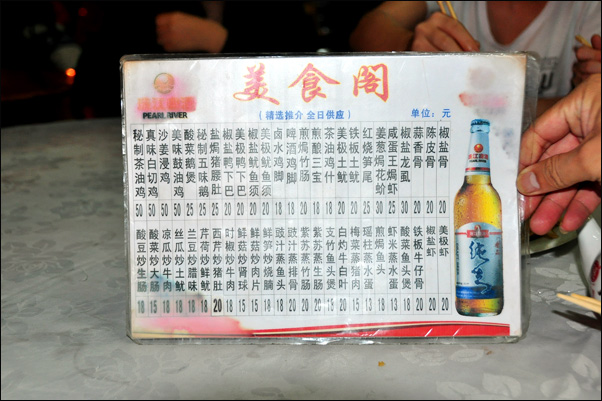 珠江啤酒
PEARL RIVER
美食阁
(精选推介 全日供应)
单位:元
秘制茶油鸡 50
真味白切鸡 50
沙姜浸鸡 50
美味鼓油鸡 50
酸菜煲鹅 50
秘制五味鹅 50
盐焗猪腰肚 25
椒盐鸭下巴 20
美极鸭下巴 20
椒盐鱿鱼须
美极鱿鱼须
卤水鸡脚 18
啤酒鸡脚 18
煎焗竹肠
煎酿三宝
茶油鸡
美极土鱿
铁板土鱿
红烧笋尾
姜葱焗花蛤
咸蛋焗虾
椒盐龙虱
蒜香骨
陈皮骨
椒盐骨
酸豆炒生肠 18
酸菜炒大肠 15
凉瓜炒牛肉 18
丝瓜炒土鱿 18
兰豆炒腊味 18
芹荷炒鲜鱿 18
西芹炒猪肚 20
叶椒炒牛肉 18
鲜菇炒肾球 15
鲜菇炒肉片 15
鲜笋炒烧腩
豉汁蒸鱼头 18
豉汁蒸排骨 18
紫苏蒸鱼头
紫苏蒸生肠
支竹鱼头煲
白灼牛白叶
梅菜蒸猪肉 15
瑶柱蒸水蛋 13
煎焗鱼头 18
虾米蒸水蛋
酸菜鱼头煲 20
铁板牛仔骨 20
椒盐虾 20
美极虾 20
纯生